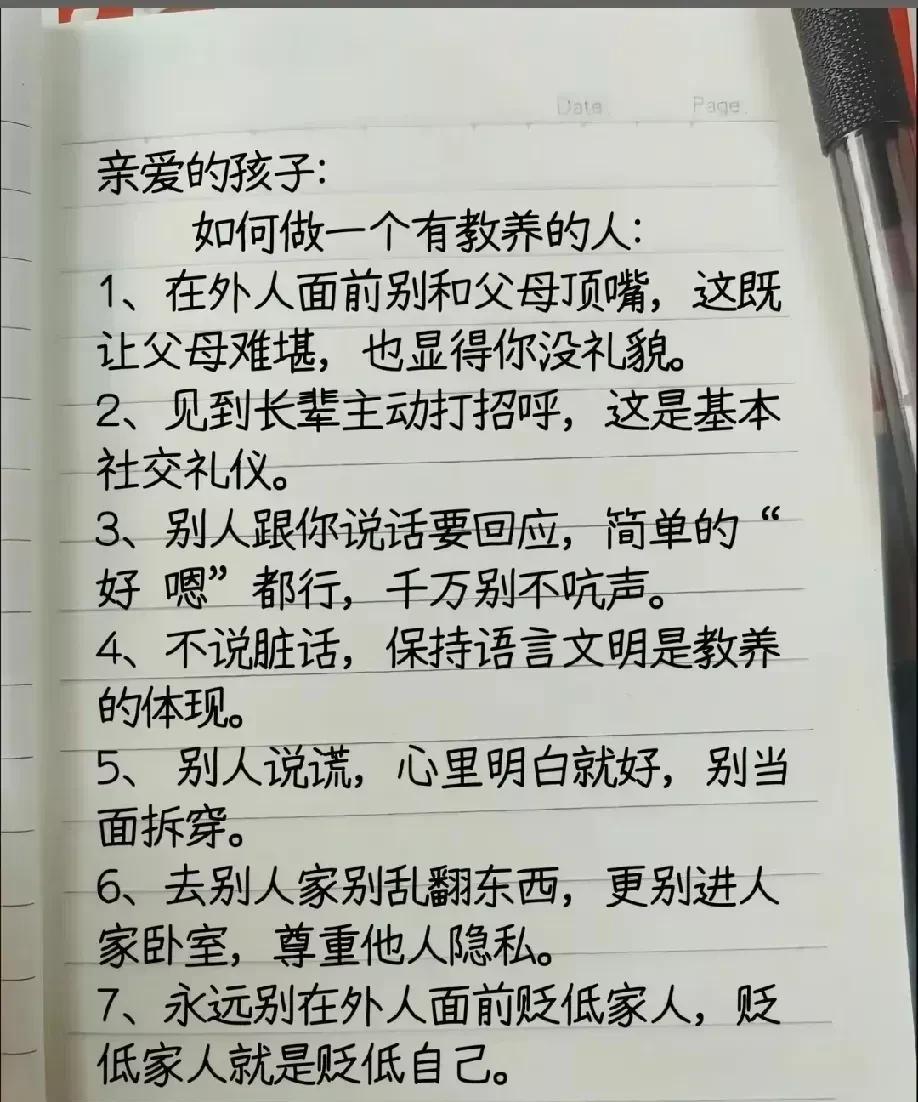 Date
Page
亲爱的孩子：
如何做一个有教养的人：
1、在外人面前别和父母顶嘴，这既
让父母难堪，也显得你没礼貌。
2、见到长辈主动打招呼，这是基本
社交礼仪。
3、别人跟你说话要回应，简单的“
好 嗯”都行，千万别不吭声。
4、不说脏话，保持语言文明是教养
的体现。
5、 别人说谎，心里明白就好，别当
面拆穿。
6、去别人家别乱翻东西，更别进人
家卧室，尊重他人隐私。
7、永远别在外人面前贬低家人，贬
低家人就是贬低自己。